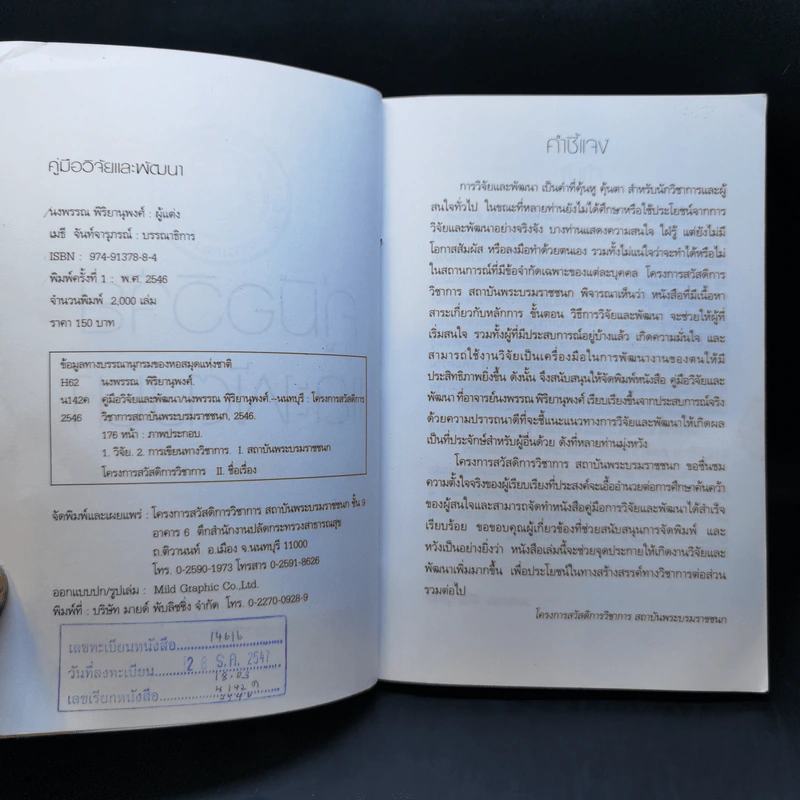 คู่มือวิจัยและพัฒนา
นงพรรณ พิริยานุพงศ์ : ผู้แต่ง
เมธี จันท์จารุภรณ์ : บรรณาธิการ
ISBN : 974-91378-8-4
พิมพ์ครั้งที่ 1 : พ.ศ. 2546
จำนวนพิมพ์ 2,000 เล่ม
ราคา 150 บาท
ข้อมูลทางบรรณานุกรมของหอสมุดแห่งชาติ
H62 นงพรรณ พิริยานุพงศ์.
น142ค คู่มือวิจัยและพัฒนา/นงพรรณ พิริยานุพงศ์.--นนทบุรี : โครงการสวัสดิการ
2546 วิชาการสถาบันพระบรมราชชนก, 2546.
176 หน้า : ภาพประกอบ.
1. วิจัย. 2. การเขียนทางวิชาการ. I. สถาบันพนบรมราชชนก
โครงการสวัสดิการวิชาการ II. ชื่อเรื่อง
จัดพิมพ์และเผยแพร่ : โครงการสวัสดิการวิชาการ สถาบันพระบรมราชชนก ชั้น 9
อาคาร 6 ตึกสำนักงานปลัดกระทรวงสาธารณสุข
ถ.ติวานนท์ อ.เมือง จ.นนทบุรี 11000
โทร. 0-2590-1973 โทรสาร 0-2591-8626
ออกแบบปก/รูปเล่ม : Mild Graphic Co.,Ltd.
พิมพ์ที่ : บริษัท มายด์ พับลิชชิ่ง จำกัด โทร. 0-2270-0928-9
เลขทะเบียนหนังสือ 14616
วันที่ลงทะเบียน 28 ธ.ค. 2547
เลขเรียกหนังสือ
คำชี้แจง
การวิจัยและพัฒนา เป็นคำที่คุ้นหู คุ้นตา สำหรับนักวิชาการและผู้
สนใจทั่วไป ในขณะที่หลายท่านยังไม่ได้ศึกษาหรือใช้ประโยชน์จากการ
วิจัยและพัฒนาอย่างจริงจัง บางท่านแสดงความสนใจ ใฝ่รู้ แต่ยังไม่มี
โอกาสสัมผัส หรือลงมือทำด้วยตนเอง รวมทั้งไม่แน่ใจว่าจะทำได้หรือไม่
ในสถานการณ์ที่มีข้อจำกัดเฉพาะของแต่ละบุคคล โครงการสวัสดิการ
วิชาการ สถาบันพระบรมราชชนก พิจารณาเห็นว่า หนังสือที่มีเนื้อหา
สาระเกี่ยวกับหลักการ ขั้นตอน วิธีการวิจัยและพัฒนา จะช่วยให้ผู้ที่
เริ่มสนใจ รวมทั้งผู้ที่มีประสบการณ์อยู่บ้างแล้ว เกิดความมั่นใจ และ
สามารถใช้งานวิจัยเป็นเครื่องมือในการพัฒนางานของตนให้มี
ประสิทธิภาพยิ่งขึ้น ดังนั้น จึงสนับสนุนให้จัดพิมพ์หนังสือ คู่มือวิจัยและ
พัฒนา ที่อาจารย์นงพรรณ พิริยานุพงศ์ เรียบเรียงขึ้นจากประสบการณ์จริง
ด้วยความปรารถนาดีที่จะชี้แนะแนวทางการวิจัยและพัฒนาให้เกิดผล
เป็นที่ประจักษ์สำหรับผู้อื่นด้วย ดังที่หลายท่านมุ่งหวัง
โครงการสวัสดิการวิชาการ สถาบันพระบรมราชชนก ขอชื่นชม
ความตั้งใจจริงของผู้เรียบเรียงที่ประสงค์จะเอื้ออำนวยต่อการศึกษาค้นคว้า
ของผู้สนใจและสามารถจัดทำหนังสือคู่มือการวิจัยและพัฒนาได้สำเร็จ
เรียบร้อย ขอขอบคุณผู้เกี่ยวข้องที่ช่วยสนับสนุนการจัดพิมพ์ และ
หวังเป็นอย่างยิ่งว่า หนังสือเล่มนี้จะช่วยจุดประกายให้เกิดงานวิจัยและ
พัฒนาเพิ่มมากขึ้น เพื่อประโยชน์ในทางสร้างสรรค์ทางวิชาการต่อส่วน
รวมต่อไป
โครงการสวัสดิการวิชาการ สถาบันพระบรมราชชนก